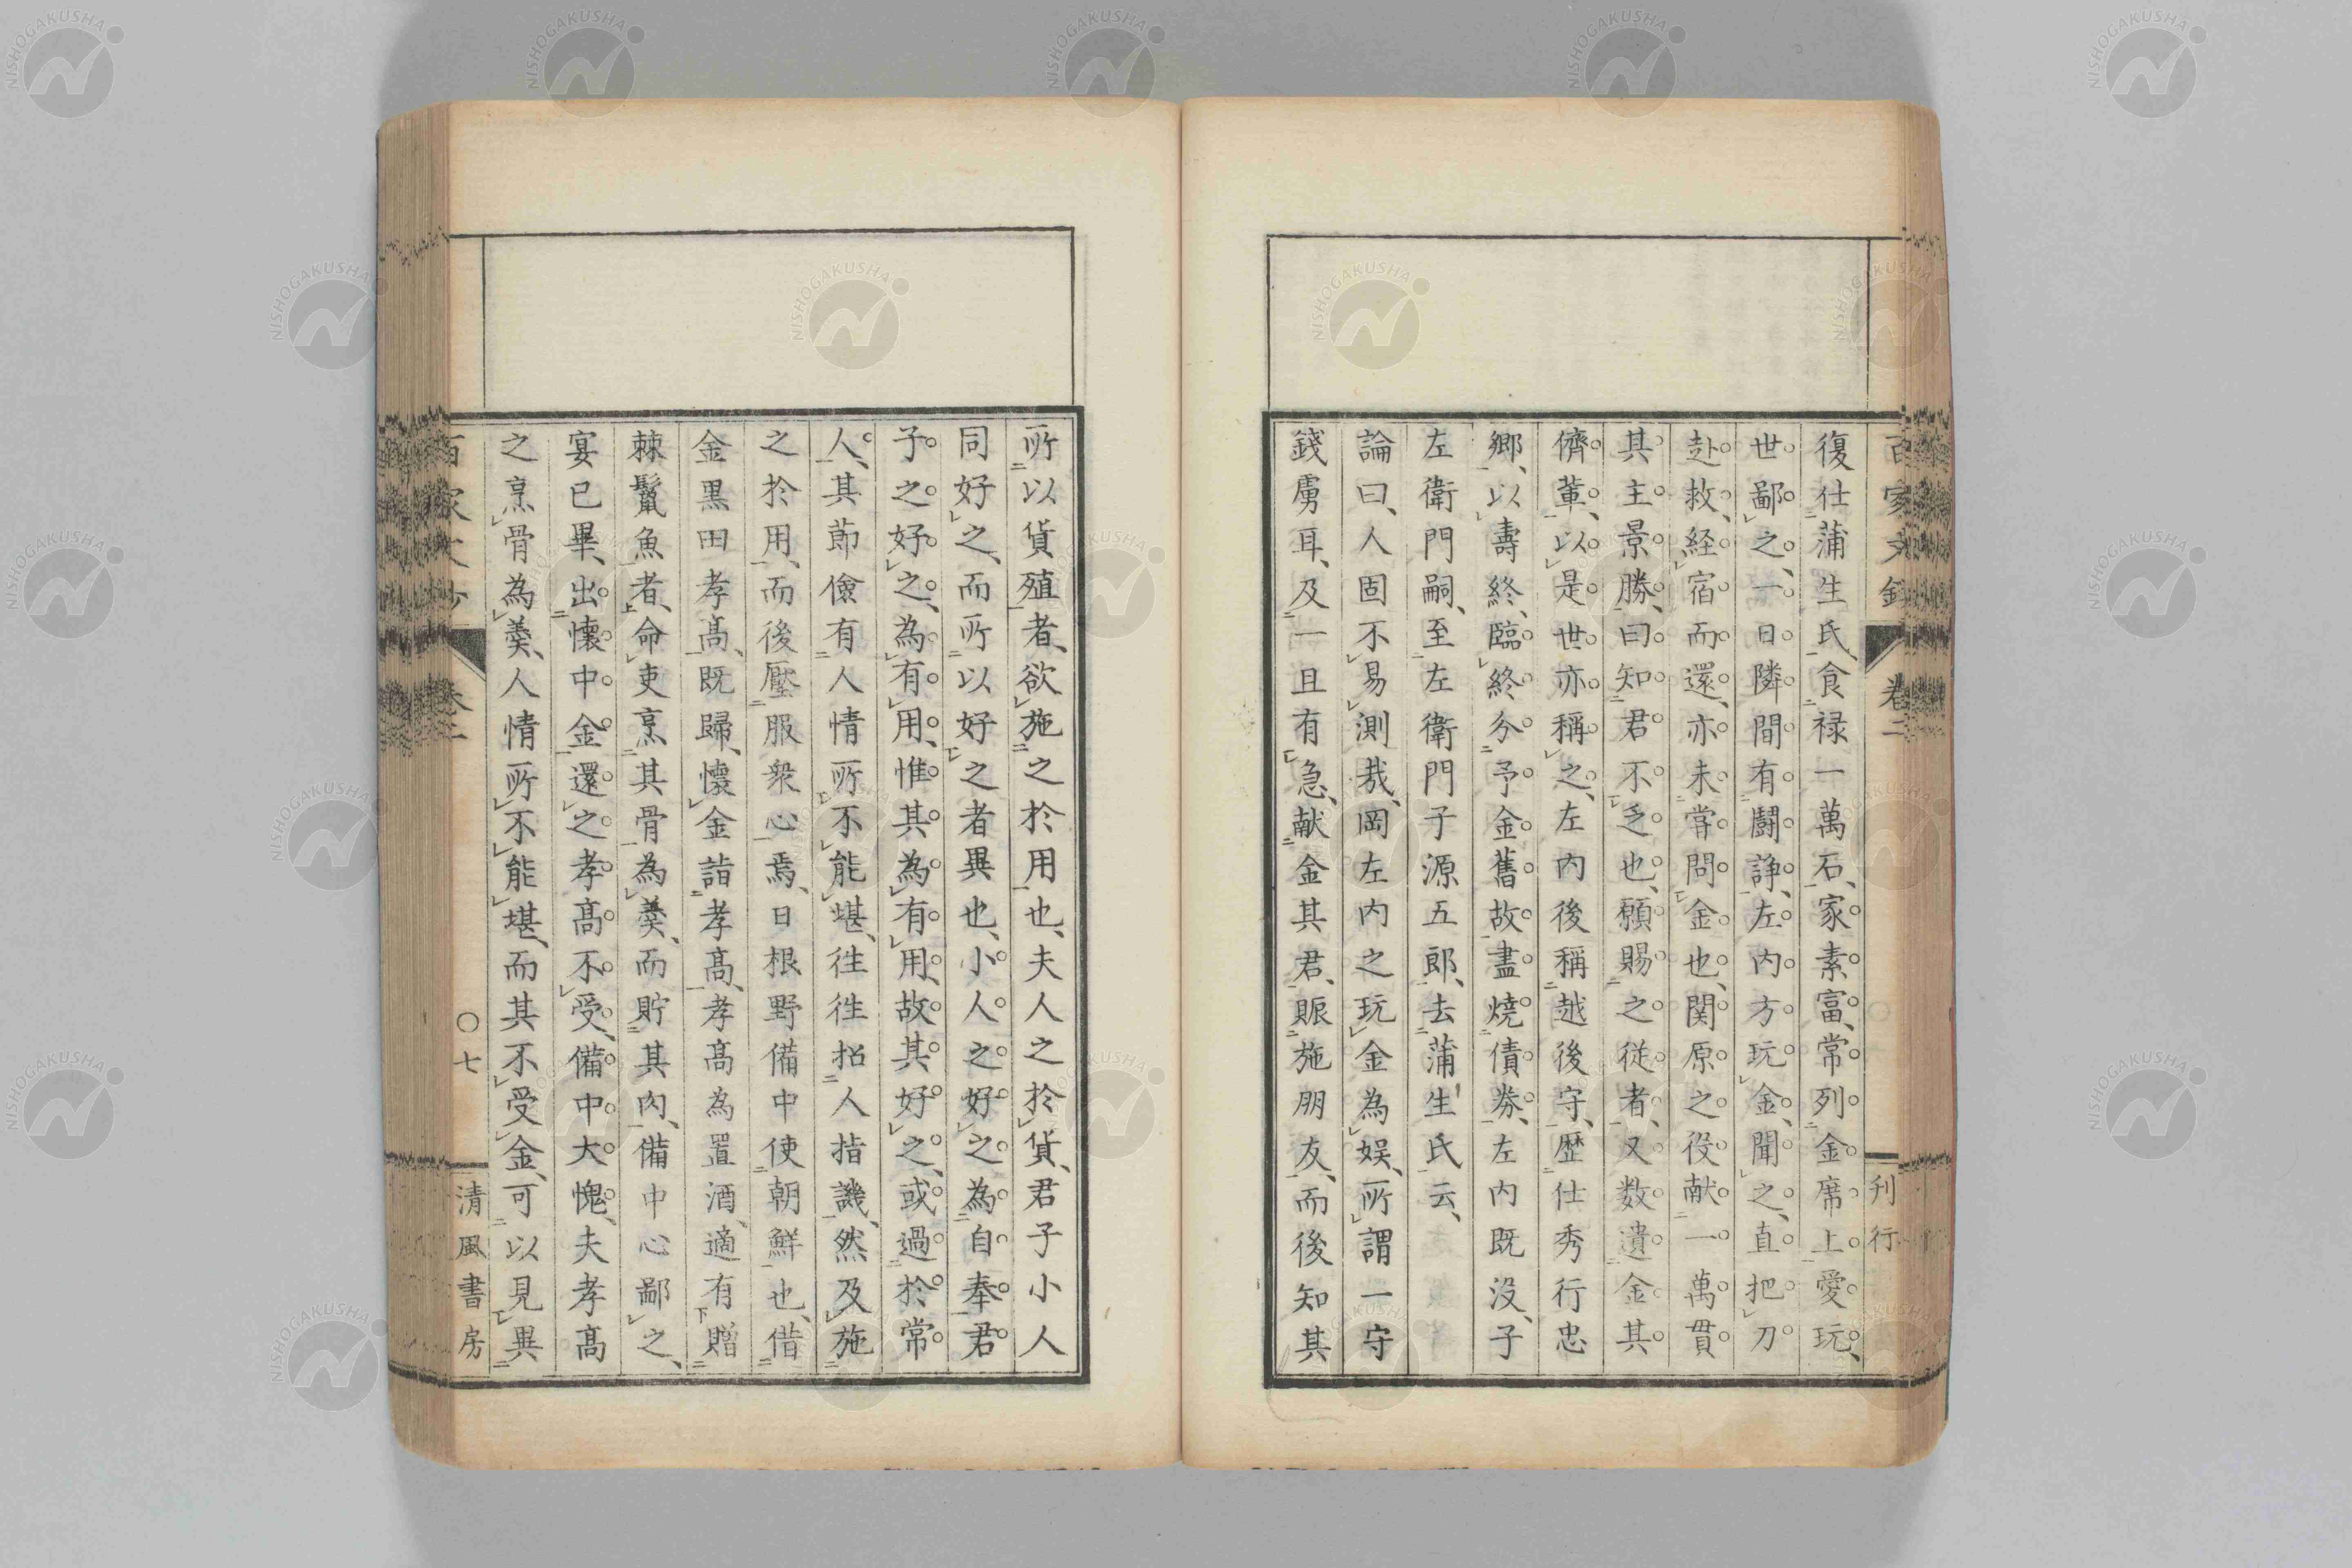 復仕蒲生氏、食禄一萬石、家素富、常列金席上愛玩、
世鄙之、一日隣間有闘諍、左内方玩金、聞之、直把刀
赴救、経宿而還、亦未甞問金也、関原之役献一萬貫
其主景勝、曰知君不乏也、願賜之従者、又数遺金其
儕軰、以是世亦稱之、左内後稱越後守、歴仕秀行忠
郷、以壽終、臨終分予金舊故、盡燒債券、左内既没、子
左衛門嗣、至左衛門子源五郎、去蒲生氏云、
論曰、人固不易測哉、岡左内之玩金為娯、所謂一守
錢虜耳、及一旦有急、献金其君、賑施朋友、而後知其
所以貨殖者、欲施之於用也、夫人之於貨、君子小人
同好之、而所以好之者異也、小人之好之為自奉、君
子之好之、為有用、惟其為有用、故其好之、或過於常
人、其節儉有人情所不能堪、徃徃招人指譏、然及施
之於用、而後壓服衆心焉、日根野備中使朝鮮也、借
金黒田孝髙、既歸、懷金詣孝髙、孝髙為置酒、適有贈
棘鬣魚者、命吏烹其骨為羹、而貯其肉、備中心鄙之、
宴已畢、出懷中金還之孝髙不受、備中大愧、夫孝髙
之烹骨為羹、人情所不能堪、而其不受金、可以見異
百家文鈔
卷二
刋行
卷二
〇七
清風書房
NISHOGAKUSHA